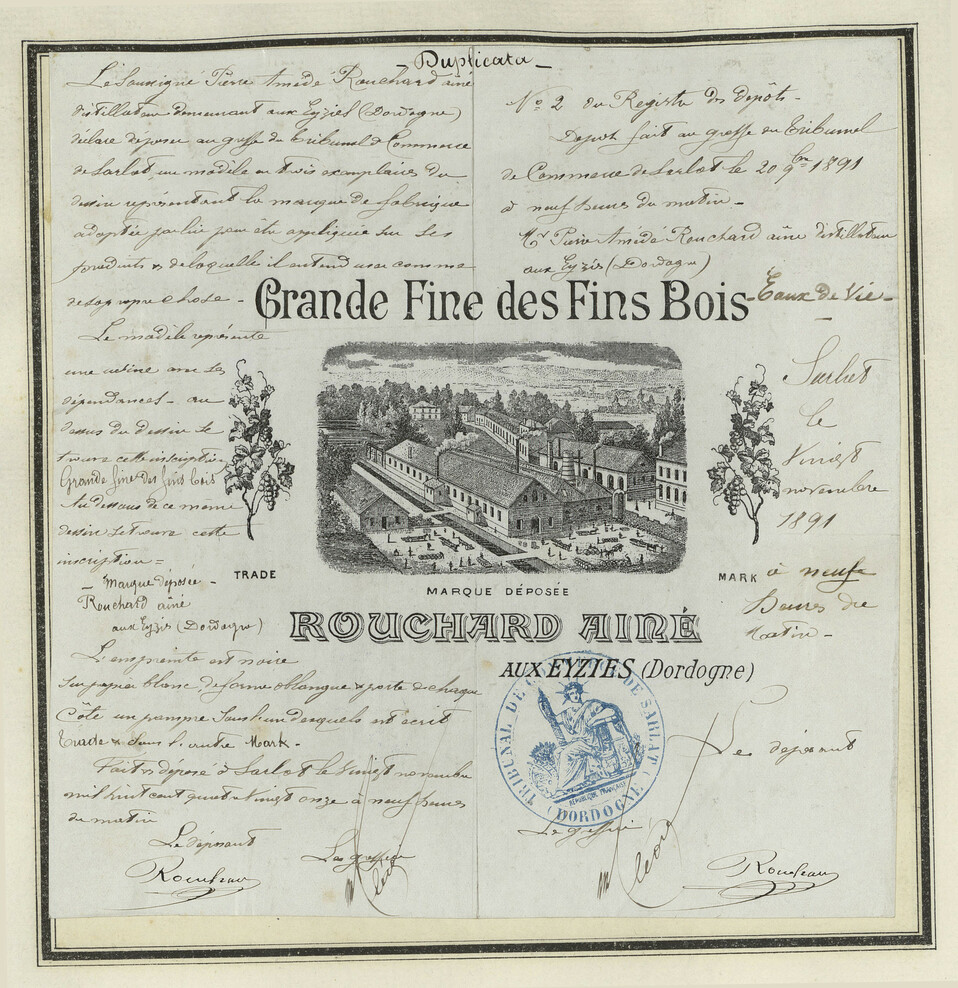 Duplicata
Le Soussigné Pierre Amédé Rouchard aîné
distillateur demeurant aux Eyzies (Dordogne)
déclare déposer au greffe du Tribunal de Commerce
de Sarlat un modèle en trois exemplaires du
dessin représentant la marque de fabrique
adoptée par lui pour être appliquée sur les
produits & de laquelle il entend user comme
de sa propre chose -
Le modèle représente
une usine avec ses
dépendances - au
dessus du dessin se
trouve cette inscription
Grande fine des fins bois
Au dessous de ce même
dessin se trouve cette
inscription =
- Marque déposée -
Rouchard aîné
aux Eyzies (Dordogne)
L'empreinte est noire
sur papier blanc, de forme oblongue & porte de chaque
côté un pampre sous l'un desquels est écrit
Trade & sous l'autre Mark -
Fait & déposé à Sarlat le vingt novembre
mil huit cent quatre vingt onze à neuf heures
du matin
Le déposant
Le greffier
No 2 du Registre des dépôts -
Dépôt fait au greffe du Tribunal
de Commerce de Sarlat le 20 9bre 1891
à neuf heures du matin -
Mr Pierre Amédé Rouchard aîné distillateur
aux Eyzies (Dordogne)
- Eaux de Vie -
Grande Fine des Fins Bois
Sarlat
le
Vingt
novembre
1891
à neuf
heures du
matin -
TRADE
MARK
MARQUE DÉPOSÉE
ROUCHARD AINÉ
AUX EYZIES (Dordogne)
TRIBUNAL DE COMMERCE DE SARLAT
(DORDOGNE)
RÉPUBLIQUE FRANÇAISE
Le déposant
Le greffier